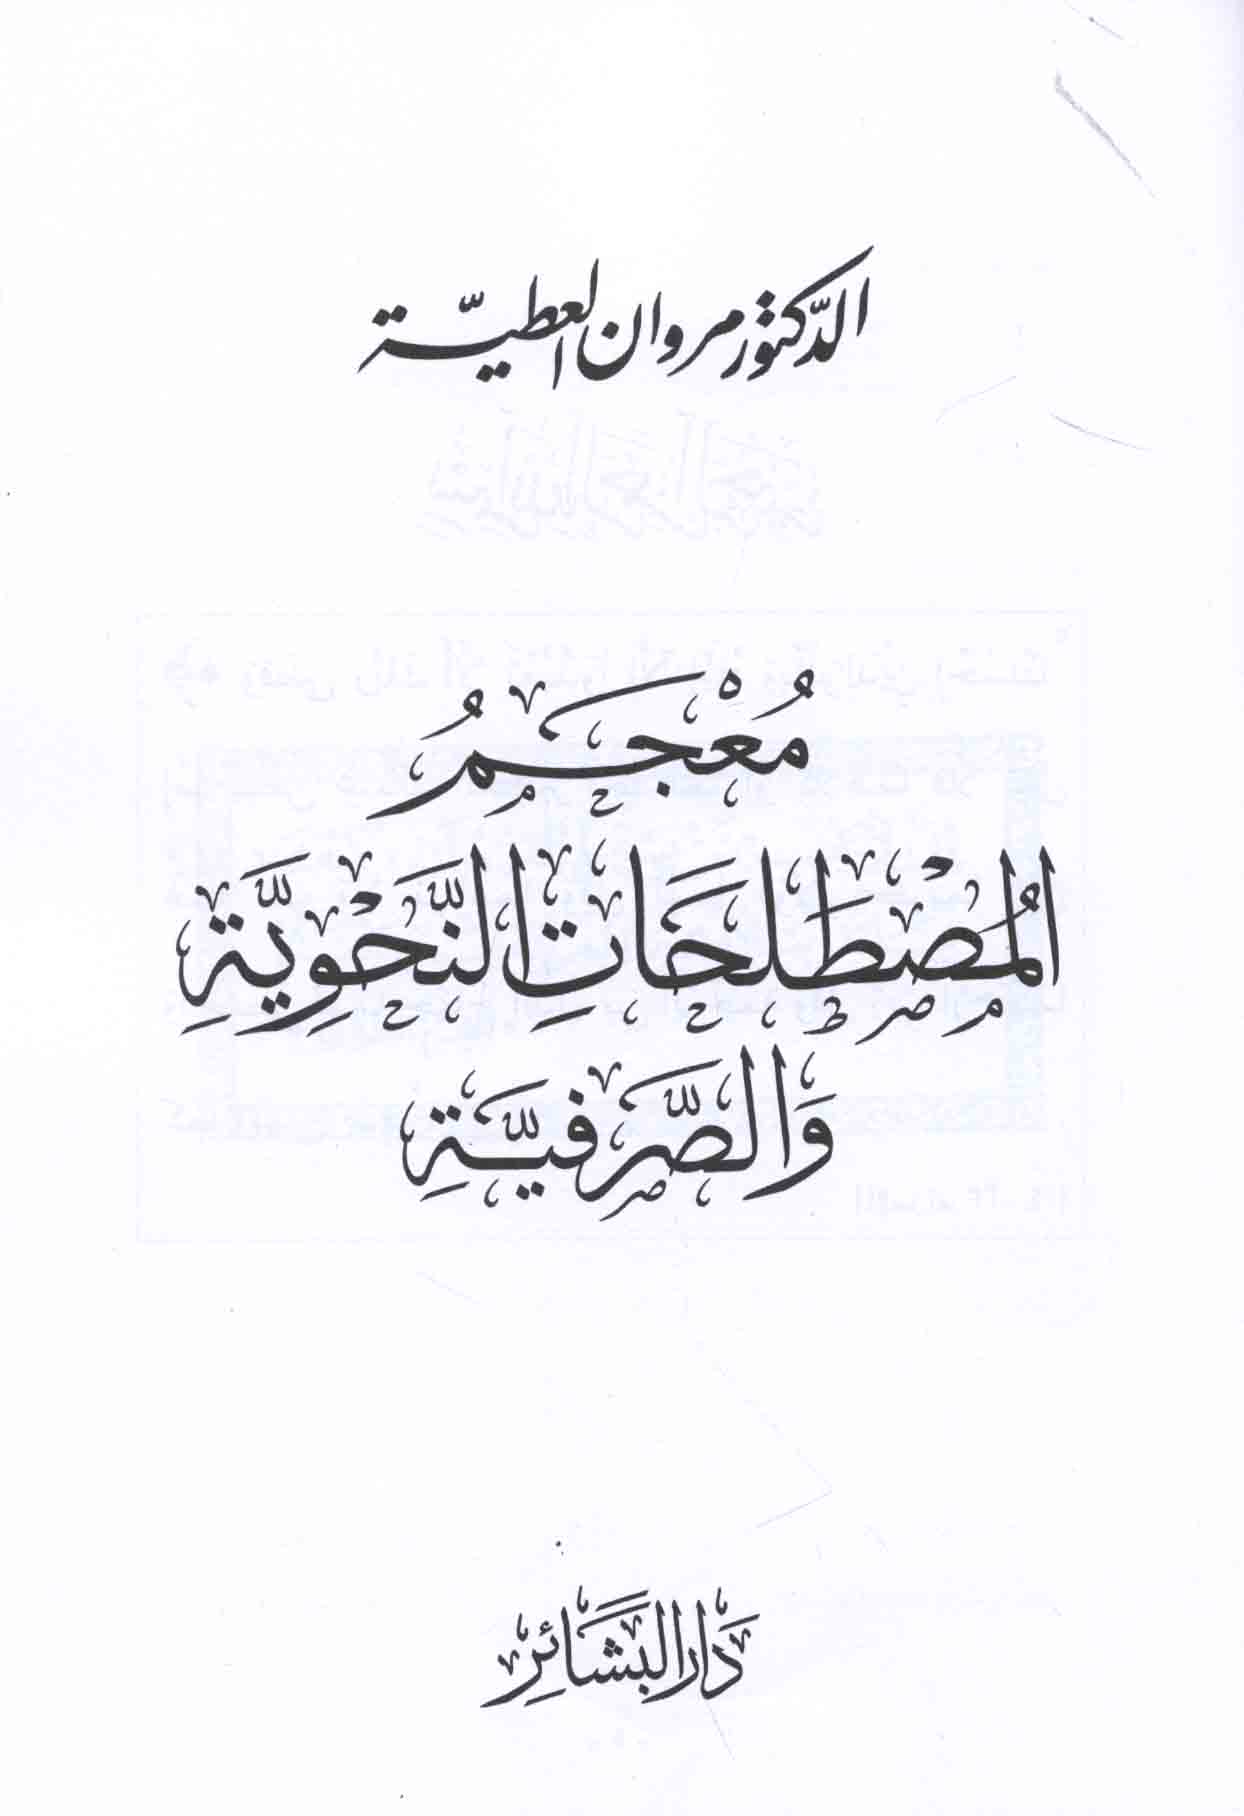 الدّكتور مروان العطيّة
مُعْجَمُ
المُصْطَلَحَاتِ النَّحْوِيَّةِ
وَالصَّرفيَّةِ
دَار البَشَائِر